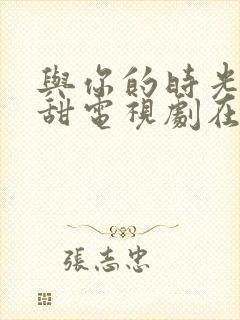 與你的時光
甜電視劇在
張志忠